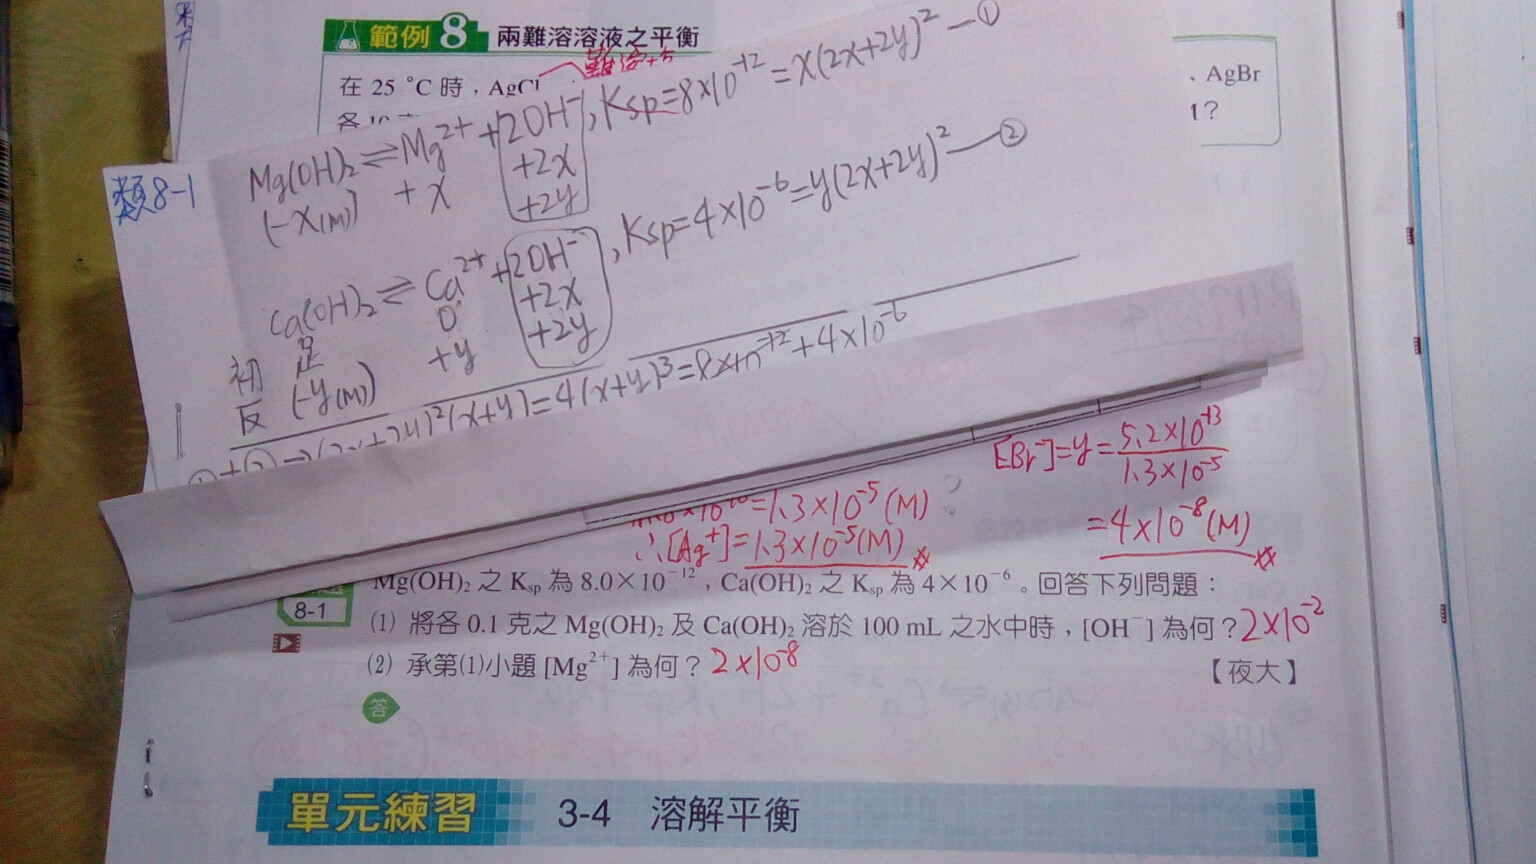 範例 8 兩難溶溶液之平衡
難溶
在 25 °C 時，AgCl
、AgBr
各10
?
類8-1
Mg(OH)₂⇌Mg²⁺+2OH⁻, Ksp=8×10⁻¹²=x(2x+2y)²—①
(-x(M)) +x +2x
+2y
Ca(OH)₂⇌Ca²⁺+2OH⁻, Ksp=4×10⁻⁶=y(2x+2y)²—②
初 足 0 +2x
反 (-y(M)) +y +2y
①+②⇒(2x+2y)²(x+y)=4(x+y)³=8×10⁻¹²+4×10⁻⁶
[Br⁻]=y=5.2×10⁻¹³/1.3×10⁻⁵
=1.3×10⁻⁵(M) ?
∴[Ag⁺]=1.3×10⁻⁵(M)
=4×10⁻⁸(M)
8-1 Mg(OH)₂ 之 Ksp 為 8.0×10⁻¹²，Ca(OH)₂ 之 Ksp 為 4×10⁻⁶。回答下列問題：
⑴ 將各 0.1 克之 Mg(OH)₂ 及 Ca(OH)₂ 溶於 100 mL 之水中時，[OH⁻] 為何？2×10⁻²
⑵ 承第⑴小題 [Mg²⁺] 為何？2×10⁻⁸ 【夜大】
答
單元練習 3-4 溶解平衡